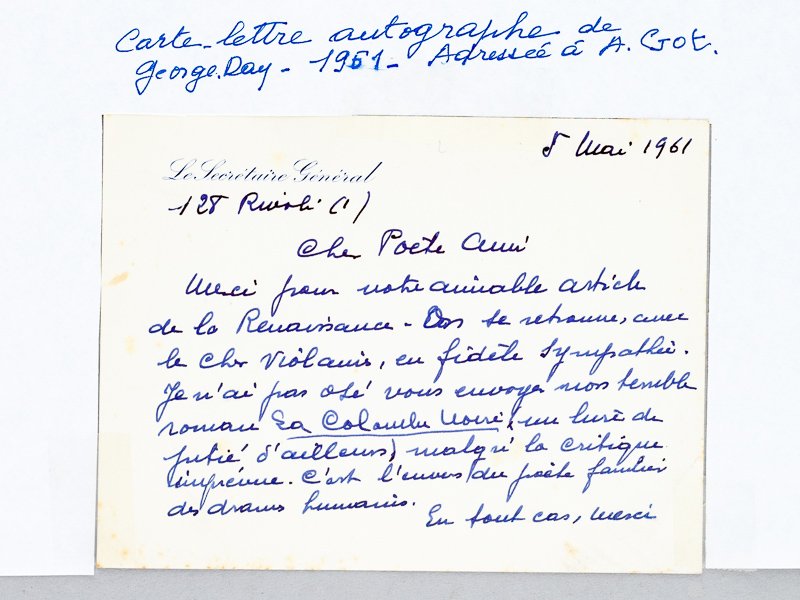 Carte-lettre autographe de
George.Day - 1961 - Adressée à A. Got.
8 Mai 1961
Le Secrétaire Général
128 Rivoli (1)
Cher Poète Ami
Merci pour votre aimable article
de la Renaissance - On se retrouve, avec
le cher Violanis, en fidèle sympathie.
Je n'ai pas osé vous envoyer mon terrible
roman La Colombe Noire (un livre de
pitié d'ailleurs) malgré la critique
imprévue. C'est l'envers du poète familier
des drames humains.
En tout cas, merci